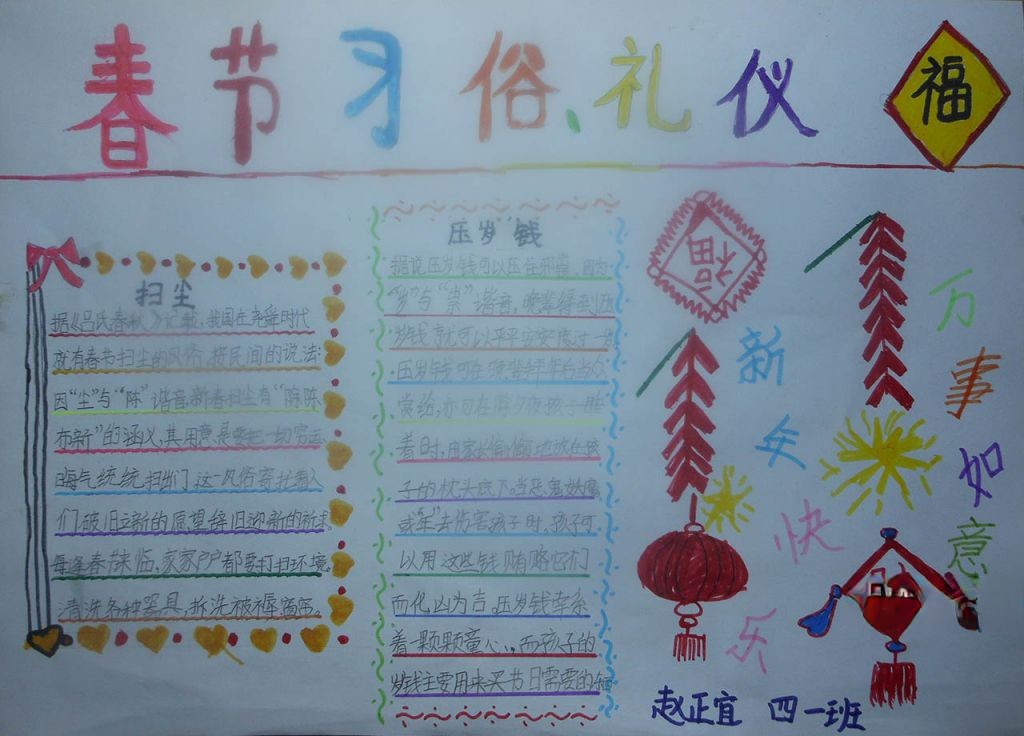 春节习俗、礼仪
福
扫尘
据《吕氏春秋》记载,我国在尧舜时代
就有春节扫尘的风俗。按民间的说法:
因“尘”与“陈”谐音,新春扫尘有“除陈
布新”的涵义,其用意是要把一切穷运、
晦气统统扫出门。这一风俗寄托着人
们破旧立新的愿望辞旧迎新的祈求。
每逢春节来临,家家户户都要打扫环境,
清洗各种器具,拆洗被褥窗帘。
压岁“钱
据说压岁钱可以压住邪祟,因为
“岁”与“祟”谐音,晚辈得到压
岁钱就可以平平安安度过一岁
压岁钱可在晚辈拜年后当众
赏给,亦可在除夕夜孩子睡
着时,由家长偷偷地放在孩
子的枕头底下。当恶鬼妖魔
或“年”去伤害孩子时,孩子可
以用这些钱贿赂它们
而化凶为吉。压岁钱牵系
着一颗颗童心,而孩子的
岁钱主要用来买书日需要的
福
新年快乐
万事如意
赵正宜 四一班